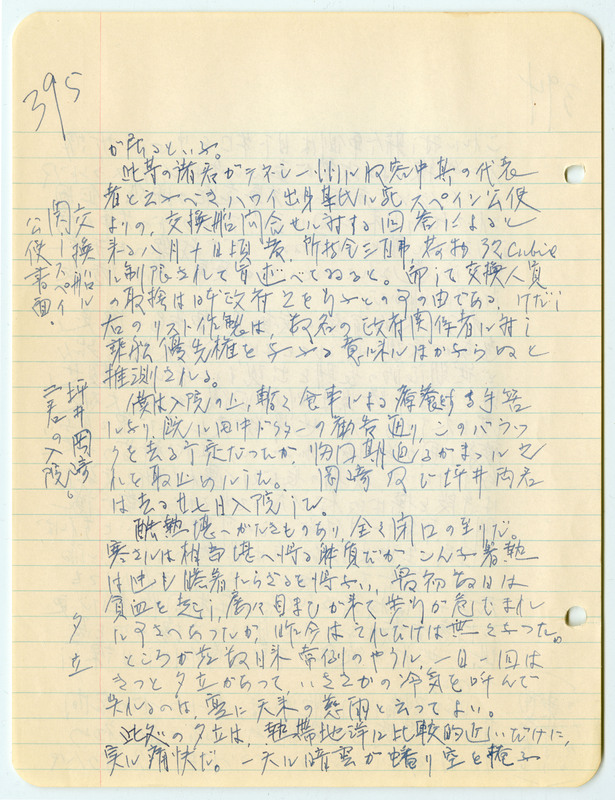 395
が居るといふ。
此等の諸君がテネシー州に収容中其の代表
者と云ふべきハワイ出身某氏に宛スペイン公使
よりの、交換船問合せに対する回答によると
来る八月十日頃発、所持金三百弗、荷物 32 Cubic
に制限されて
と述べてゐると。即して交換人員
の取捨は日本政府之を
の由である。けだし
右のリスト作製は、数名の政府関係者に対し
乗船優先権を与へる意味にほかならぬと
推測される。
僕は入院の上、暫く食事による療養する手筈
になり、既に田中ドクターの勧告通り、このバラッ
クを去る予定だったが、
期迫るがまゝに、そ
れを取止めにした。岡崎及び坪井両君
は去る廿七日入院した。
酷熱堪へがたきものあり、全く閉口の至りだ。
寒さには相当堪へ得る体質だが、こんな暑熱
は迚も勝者たらざるを得ない、最初数日は
貧血を起し、屡々目まひが来て歩行が危ぶまれ
た
さへあったが、昨今はそれだけは無くなった。
ところが 数日来 常例のやうに、一日一回は
きっと夕立があって、いさゝかの冷気を呼んで
呉れるのは、実に天来の慈雨と云ってよい。
此処の夕立は、熱帯地
に比較的近いだけに、
実に痛快だ。一天に暗雲が蟠り空を掩ふ
交換船ニ
関
スペイン
公使書面。
坪井岡崎
二君の入院。
夕立